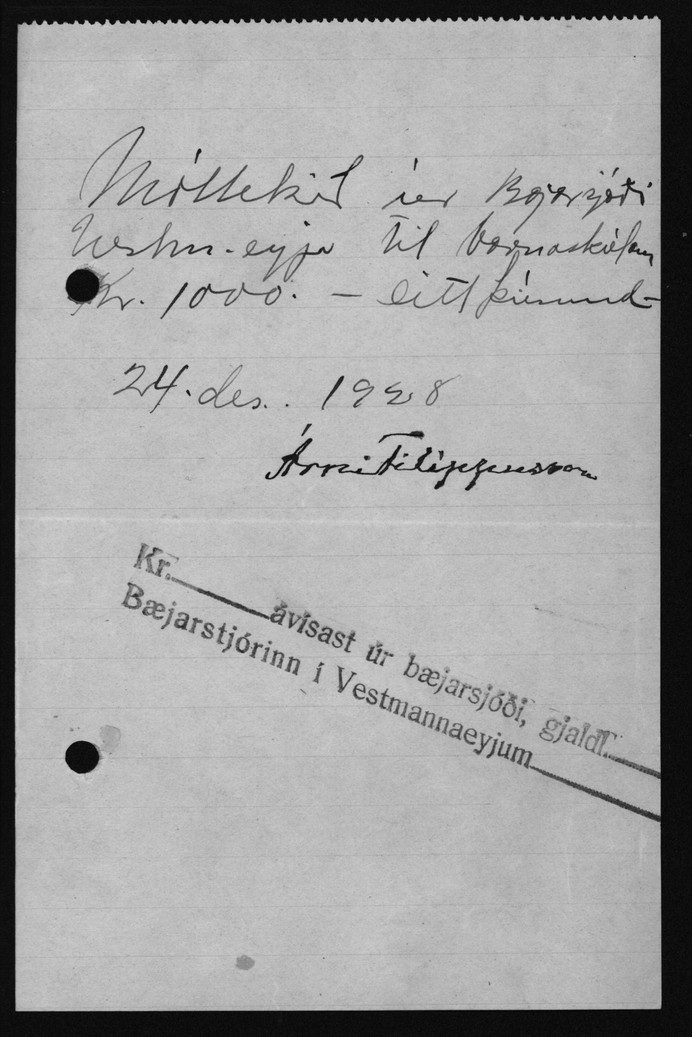 Móttekið úr Bæjarsjóði
Vestm.eyja til barnaskólans
Kr. 1000. – Eitt þúsund –
24. des. 1928
Árni Filippusson
Kr. ávísast úr bæjarsjóði, gjaldl.
Bæjarstjórinn í Vestmannaeyjum